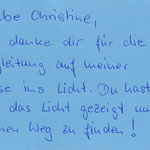 be Christine,
danke dir für die
leitung auf meiner
se ins Licht. Du hast
das Licht gezeigt un
en Weg zu finden!